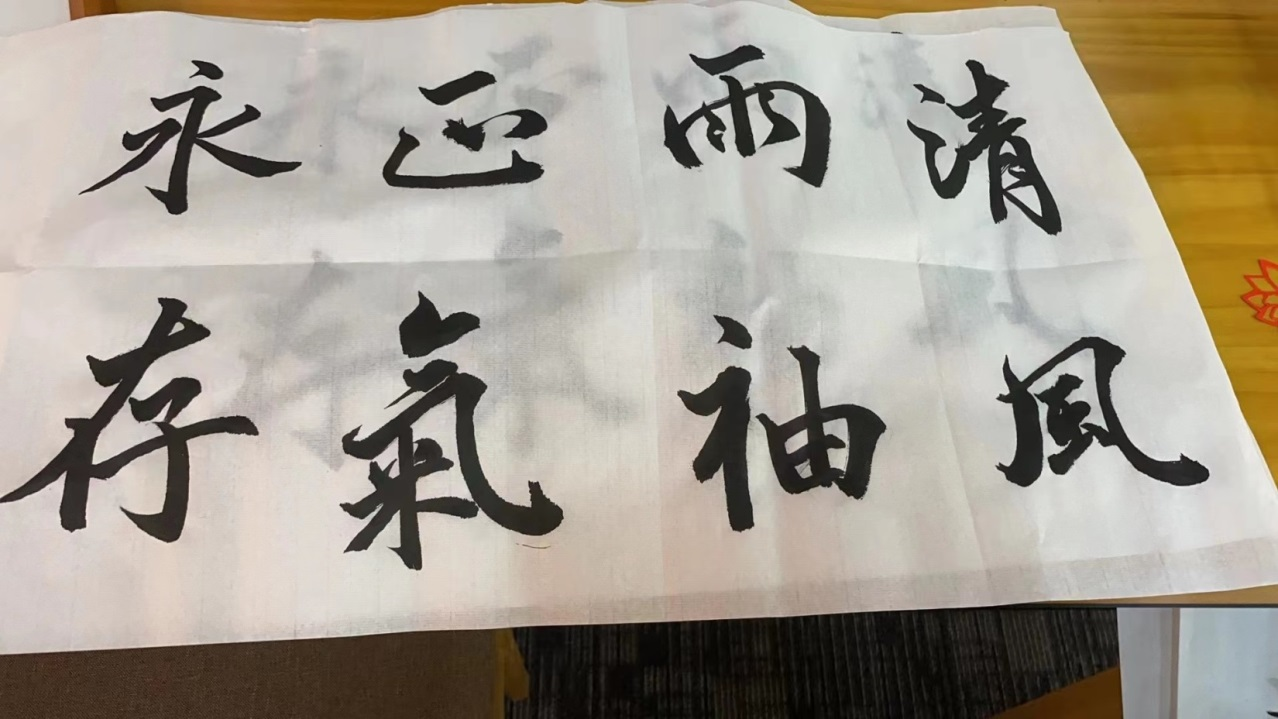 清風
兩袖
正氣
永存